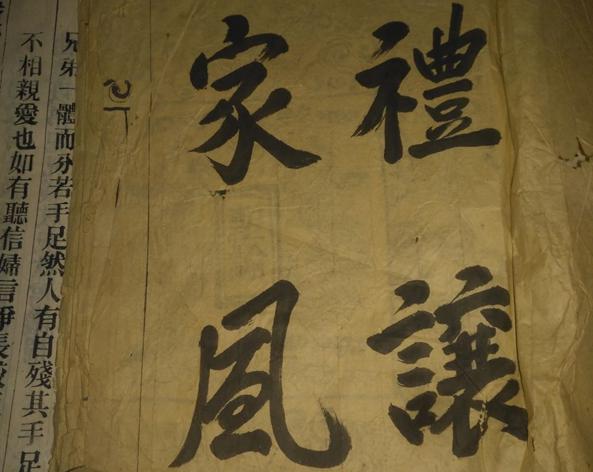 禮讓
家風
兄弟一體而分若手足然人有自殘其手足
不相親愛也如有聽信婦言